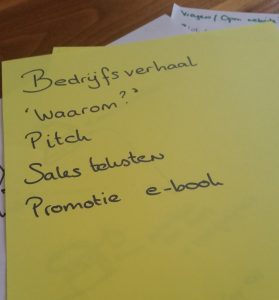 Bedrijfsverhaal
'Waarom?'
Pitch
Sales teksten
Promotie e-book
Vragen / Open website